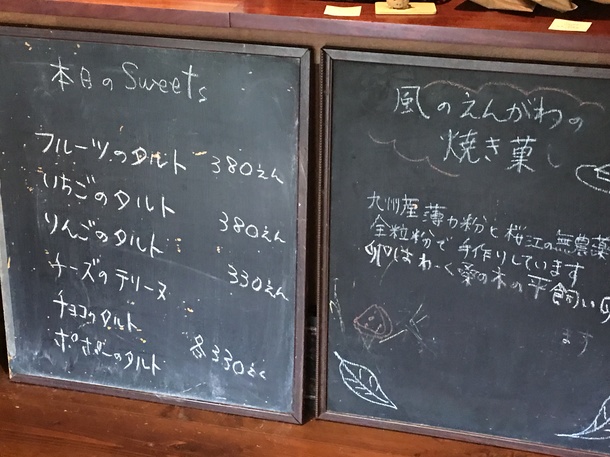 本日のSweets
フルーツのタルト 380えん
いちごのタルト
りんごのタルト 380えん
チーズのテリーヌ 330えん
チョコのタルト
のタルト 各330えん
風のえんがわの
焼き菓
九州産薄力粉と桜江の無農薬
全粒粉で手作りしています
卵はわ 桑の木の平飼い卵
ます